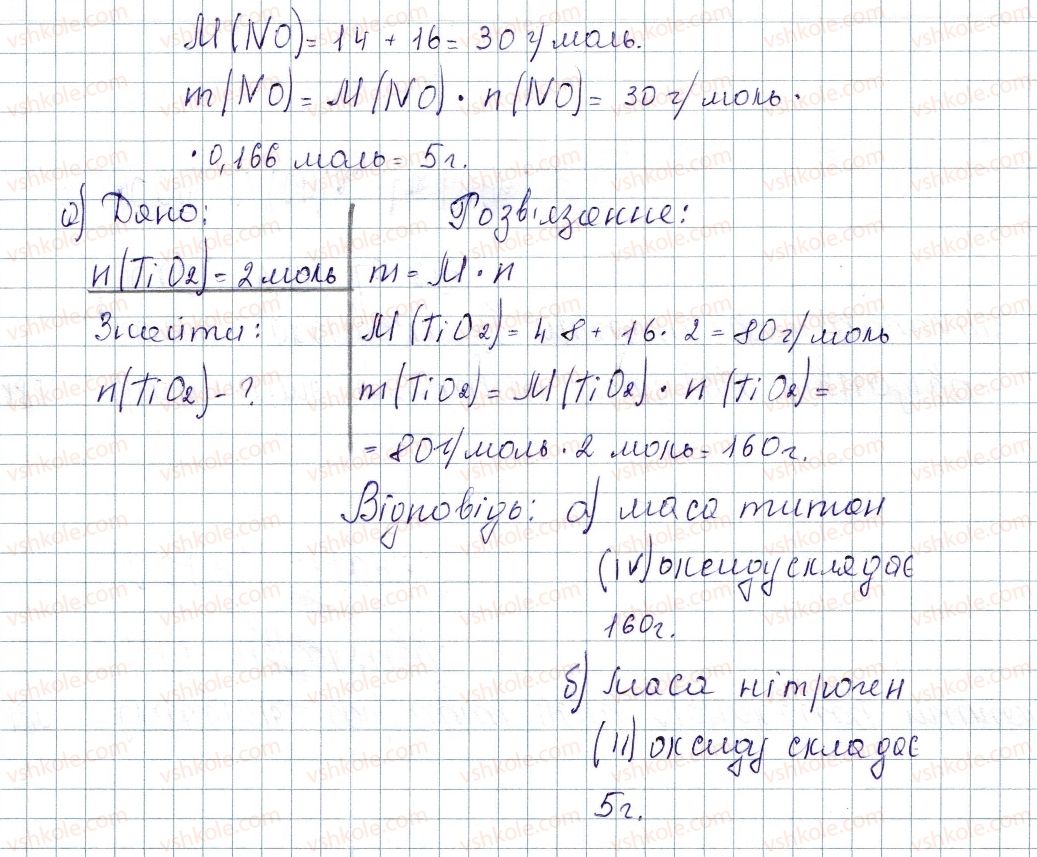 M(NO)= 14 + 16= 30 г/моль.
m(NO)= M(NO) · n(NO)= 30 г/моль ·
· 0,166 моль = 5г.
а) Дано:
n(TiO2)= 2 моль
Знайти:
n(TiO2) - ?
Розв'язання:
m= M · n
M(TiO2)= 48 + 16 · 2 = 80 г/моль
m(TiO2)= M(TiO2) · n (TiO2)=
= 80 г/моль · 2 моль = 160г.
Відповідь: а) маса титан
(IV) оксиду складає
160г.
б) маса нітроген
(II) оксиду складає
5г.
vshkole.com